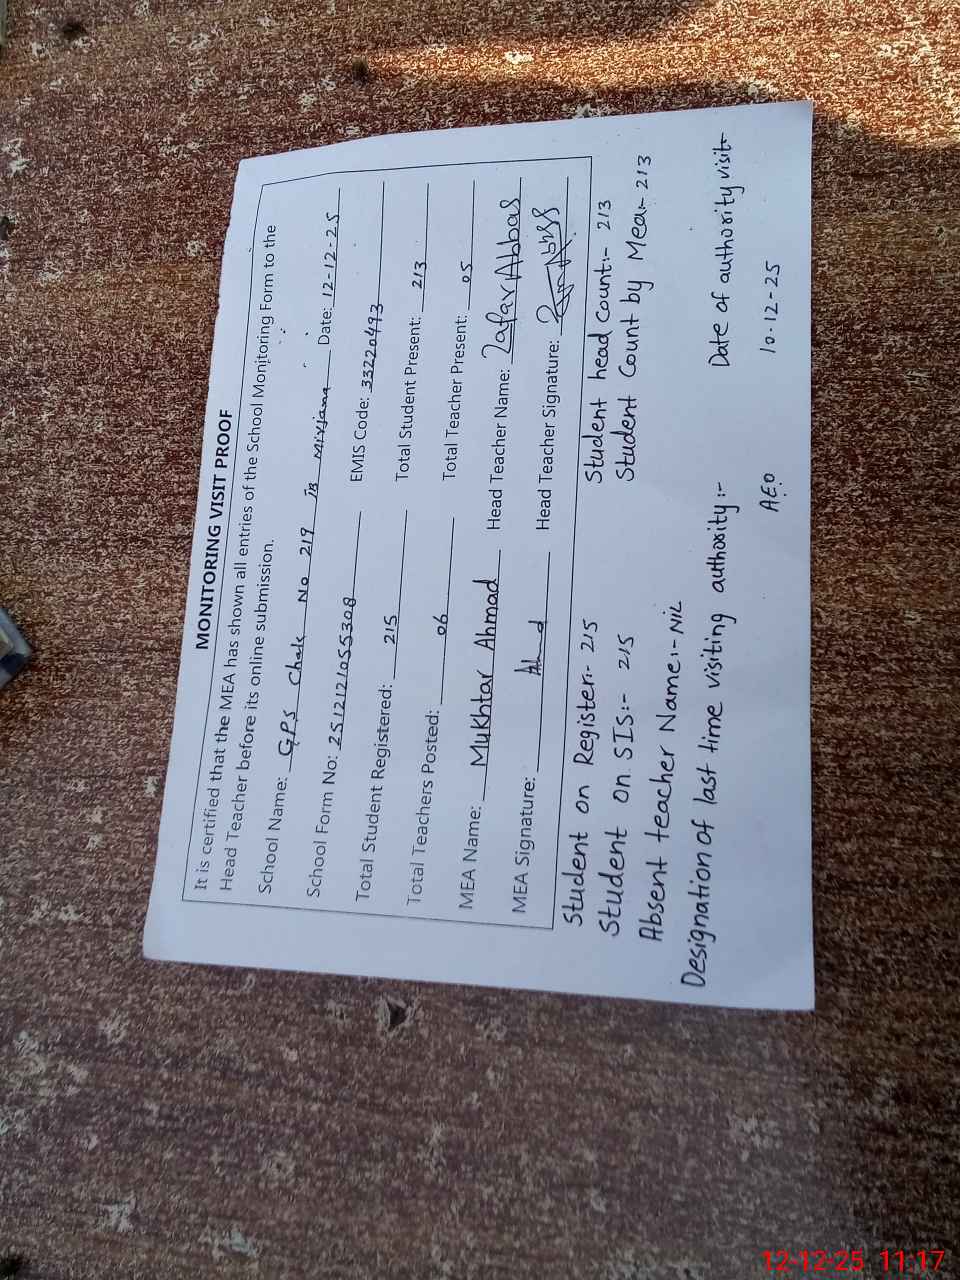 MONITORING VISIT PROOF
It is certified that the MEA has shown all entries of the School Monitoring Form to the
Head Teacher before its online submission.
School Name: G.P.S Chak No 219 JB Mirjana Date: 12-12-25
School Form No: 2512121055308 EMIS Code: 33220493
Total Student Registered: 215 Total Student Present: 213
Total Teachers Posted: 06 Total Teacher Present: 05
MEA Name: Mukhtar Ahmad Head Teacher Name: Zafar Abbas
MEA Signature: Head Teacher Signature:
Student on Register:- 215 Student head count:- 213
Student on SIS:- 215 Student Count by Mea:- 213
Absent teacher Name:- NIL
Designation of last time visiting authority:- Date of authority visit-
A.E.O 10-12-25
12-12-25 11:17